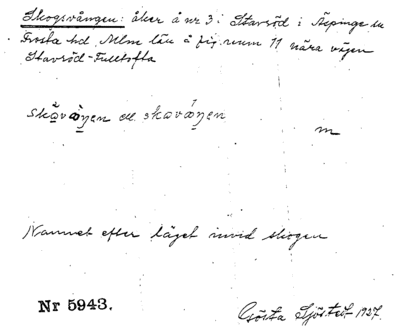 Skogsvången: åker å nr 3 i Stavröd i Äspinge sn
Frosta hd Mlm län å fig.rum 11 nära vägen
Stavröd-Fulltofta
skåvåŋen ell. skovåŋen
m
Namnet efter läget invid skogen
Nr 5943.
Gösta Sjöstedt 1927.